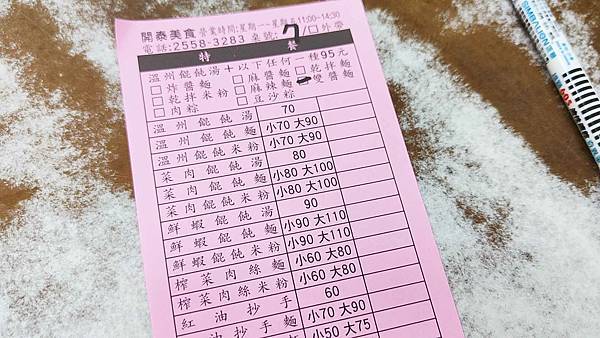 開泰美食 營業時間:星期一~星期五11:00~14:30
電話:2558-3283 桌號: 7 / □外帶
特餐
溫州餛飩湯＋以下任何一種95元
□炸醬麵 □麻醬麵 □乾拌麵
□乾拌米粉 □麻辣麵 雙醬麵
□肉粽 □豆沙粽
溫州餛飩湯 70
溫州餛飩麵 小70 大90
溫州餛飩米粉 小70 大90
菜肉餛飩湯 80
菜肉餛飩麵 小80 大100
菜肉餛飩米粉 小80 大100
鮮蝦餛飩湯 90
鮮蝦餛飩麵 小90 大110
鮮蝦餛飩米粉 小90 大110
榨菜肉絲麵 小60 大80
榨菜肉絲米粉 小60 大80
紅油抄手 60
紅油抄手麵 小70 大90
小50 大75